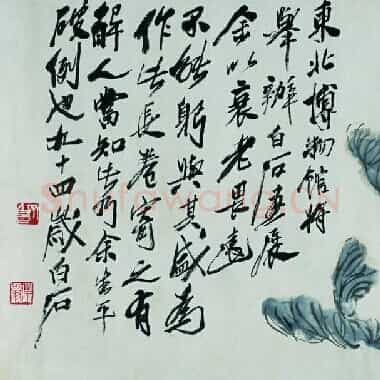 東北博物館將
舉辦白石畫展
余以衰老畏遠
不能躬與其盛為
作此長卷寄之有
解人當知法門余生平
破例也九十四歲白石
Shufawang.CN